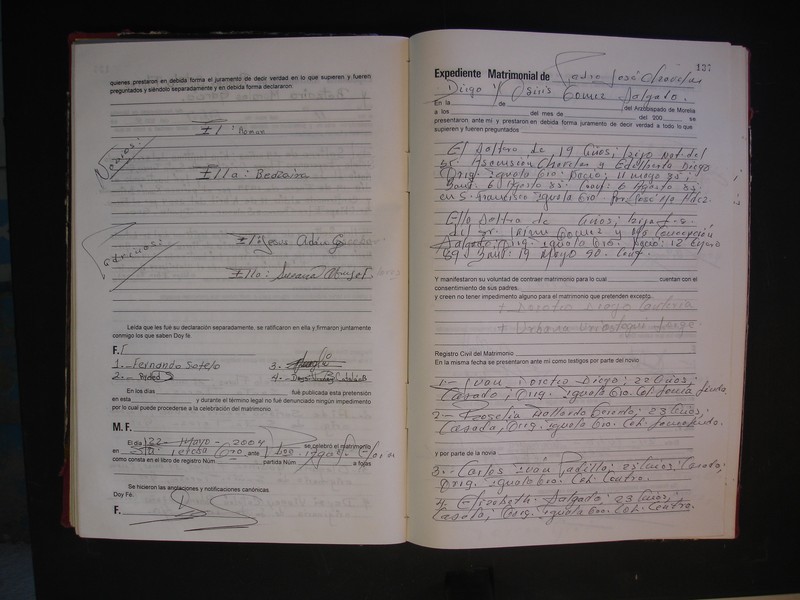 quienes prestaron en debida forma el juramento de decir verdad en lo que supieren y fueren
preguntados y siéndolo separadamente y en debida forma declararon
El: Roman
Ella: Bedzaira
Padrinos:
El: Jesus Adán G
Ella: Susana
Leída que les fué su declaración separadamente, se ratificaron en ella y firmaron juntamente
conmigo los que saben Doy fé.
F.
1.- Fernando Sotelo
3.-
2.-
4.-
En los días fué publicada esta pretensión
en esta y durante el término legal no fué denunciado ningún impedimento
por lo cual puede procederse a la celebración del matrimonio
M. F.
El día 22 Mayo - 2004 se celebró el matrimonio
en Sta. Teresa Gro ante
como consta en el libro de registro Núm partida Núm a fojas
Se hicieron las anotaciones y notificaciones canónicas.
Doy Fé.
F.
127
Expediente Matrimonial de Pedro José Chavelas
Diego Y Osiris Gomez Salgado.
En la de del Arzobispado de Morelia
a los del mes de del 200 se
presentaron ante mí y prestaron en debida forma juramento de decir verdad a todo lo que
supieren y fueren preguntados
El Soltero de 19 Años; hijo Nat. del
Sr. Ascension Chavelas y Edilberta Diego
Orig. Iguala Gro. Nació: 11 mayo 85;
Baut. 6 Agosto 85. Conf: 6 Agosto 85
en S. Francisco Iguala Gro. Pr. José Hdez.
Ella Soltera de Años; hija
del Sr. Jaime Gomez y Ma Concepción
Salgado; Orig. Iguala Gro. Nació: 12 Enero
89. Baut: 19 Mayo 90. Conf.
Y manifestaron su voluntad de contraer matrimonio para lo cual cuentan con el
consentimiento de sus padres.
y creen no tener impedimento alguno para el matrimonio que pretenden excepto
Registro Civil del Matrimonio
En la misma fecha se presentaron ante mí como testigos por parte del novio
1.- Ivan Diego; 22 Años;
Casado, Orig. Iguala Gro. Col.
2.- Rogelia 23 Años,
Casada, Orig. Iguala Gro. Col.
y por parte de la novia
3.- Carlos Iván Padilla; 25 Años; Casado;
Orig. Iguala Gro. Col. Centro.
4. Elizabeth Salgado; 23 Años;
Casada; Orig. Iguala Gro. Col. Centro.